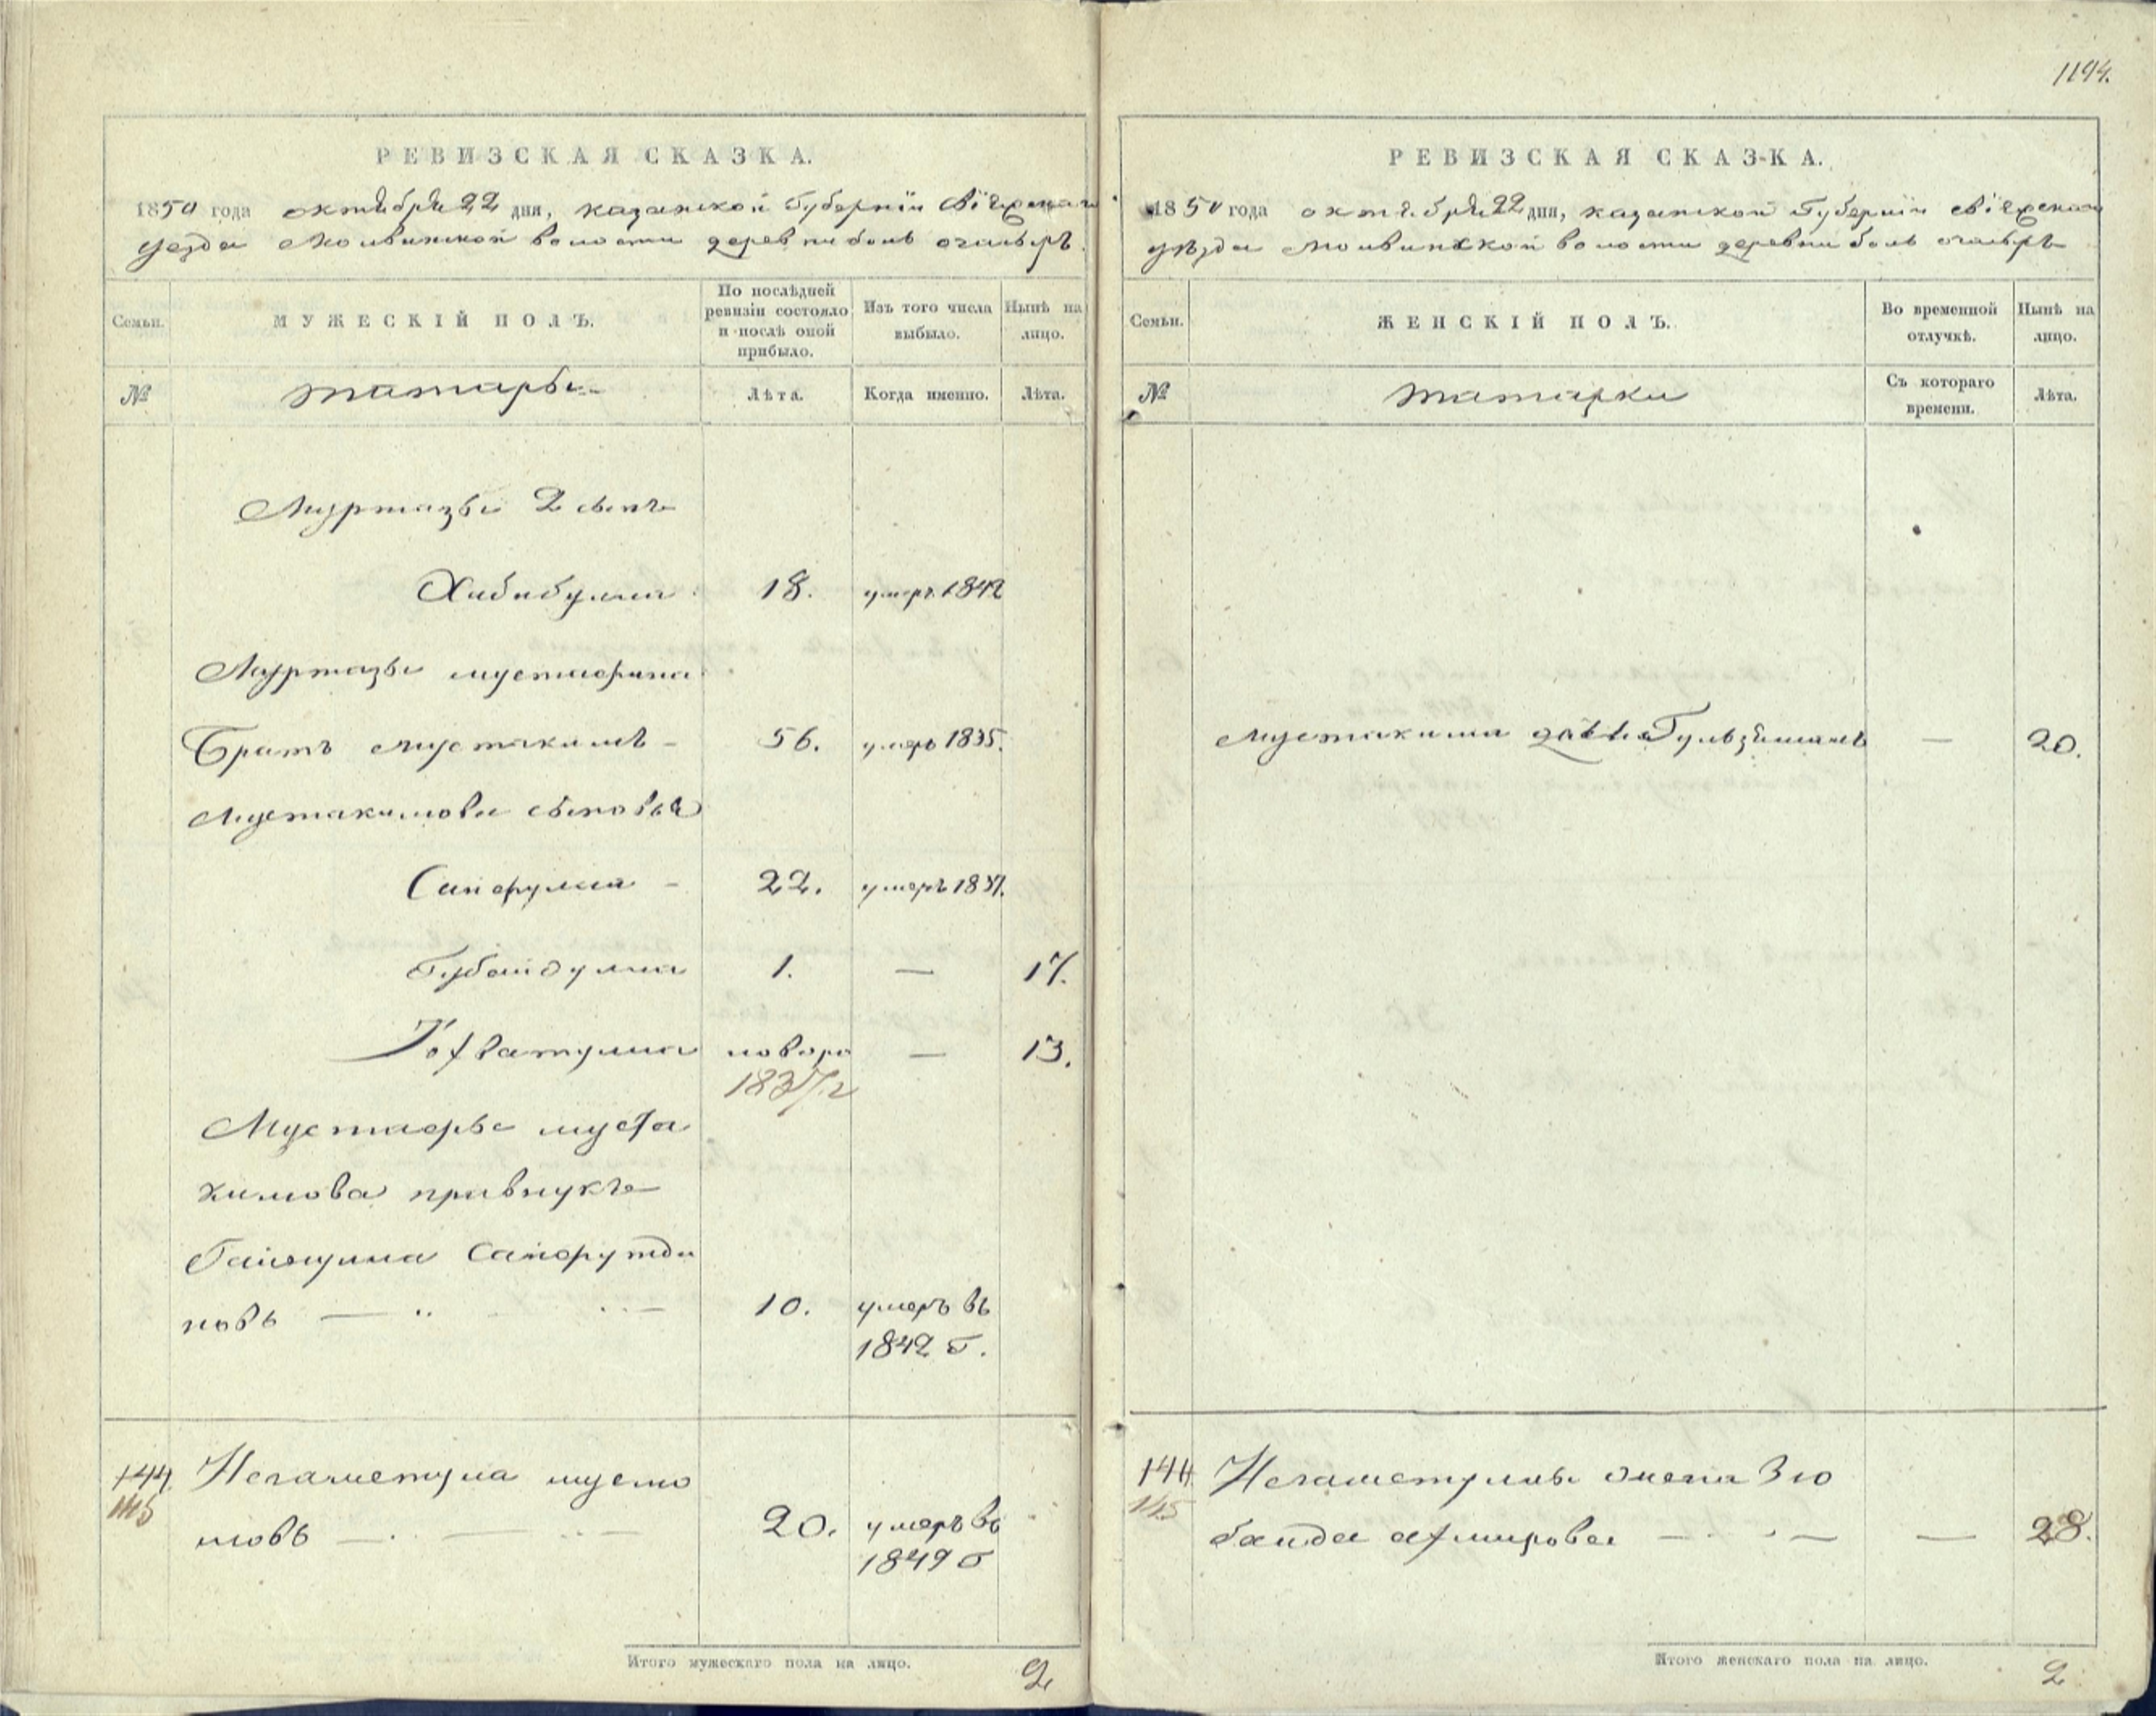 1194.
РЕВИЗСКАЯ СКАЗКА.
1850 года октября 22 дня, казанской Губернiи Свiяжскаго
уезда Молвинской волости деревни боль
Семьи.
МУЖЕСКІЙ ПОЛЪ.
По послѣдней ревизіи состояло и послѣ оной прибыло.
Изъ того числа выбыло.
Нынѣ на лицо.
№
татары
Лѣта.
Когда именно.
Лѣта.
Муртазы 2 сынъ
Хибибулла 18. умеръ 1842
Муртазы мустафина
Братъ мустакимъ - 56. умеръ 1835.
Мустакимова сыновья
22. умеръ 1837.
Губайдулла 1. — 17.
новоро — 13.
1837 г
Мустафы муста
кимова правнукъ
новъ — 10. умеръ въ
1842 г.
144. Негаметула
145
20. умеръ въ
1849 г
Итого мужескаго пола на лицо. 2
РЕВИЗСКАЯ СКАЗКА.
1850 года октября 22 дня, казанской Губернiи свiяжскаго
уѣзда Молвинской волости деревни боль
Семьи.
ЖЕНСКІЙ ПОЛЪ.
Во временной отлучкѣ.
Нынѣ на лицо.
№
татарки
Съ котораго времени.
Лѣта.
Мустакима — 20.
144. Негаметуллы жена Зю
145
байда — — 28.
Итого женскаго пола на лицо. 2